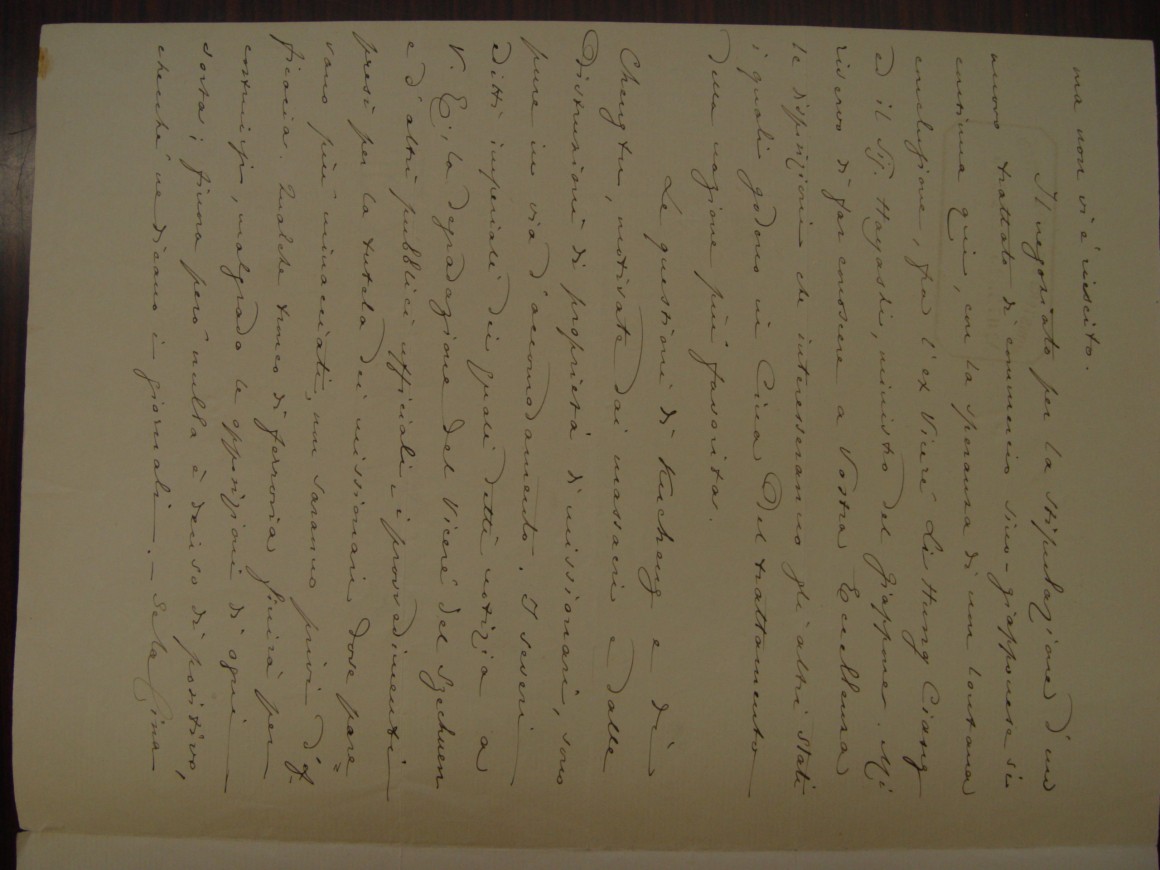 ma non vi è riescito.
Il negoziato per la stipulazione d'un
nuovo trattato di commercio sino-giapponese si
continua qui, con la speranza di non lontana
conclusione, fra l'ex Vicerè Li Hung Ciang
ed il Sig. Hayashi, ministro del Giappone. Mi
riservo di far conoscere a Vostra Eccellenza
le disposizioni che interesseranno gli altri Stati
i quali godono in Cina del trattamento
della nazione più favorita.
Le questioni di Kucheng e di
Chengtu, motivate dai massacri e dalle
distruzioni di proprietà di missionari, sono
pure in via d'accomodamento. I severi
editti imperiali dei quali detti notizia a
V. E., la degradazione del Vicerè del Szechuen
e d'altri pubblici ufficiali e i provvedimenti
presi per la tutela dei missionari dove pare=
vano più minacciati, non saranno privi d'ef-
ficacia. Qualche tronco di ferrovia finirà per
costruirsi, malgrado le opposizioni di ogni
sorta; finora però nulla è deciso di positivo,
checchè ne dicano i giornali. - Se la Cina